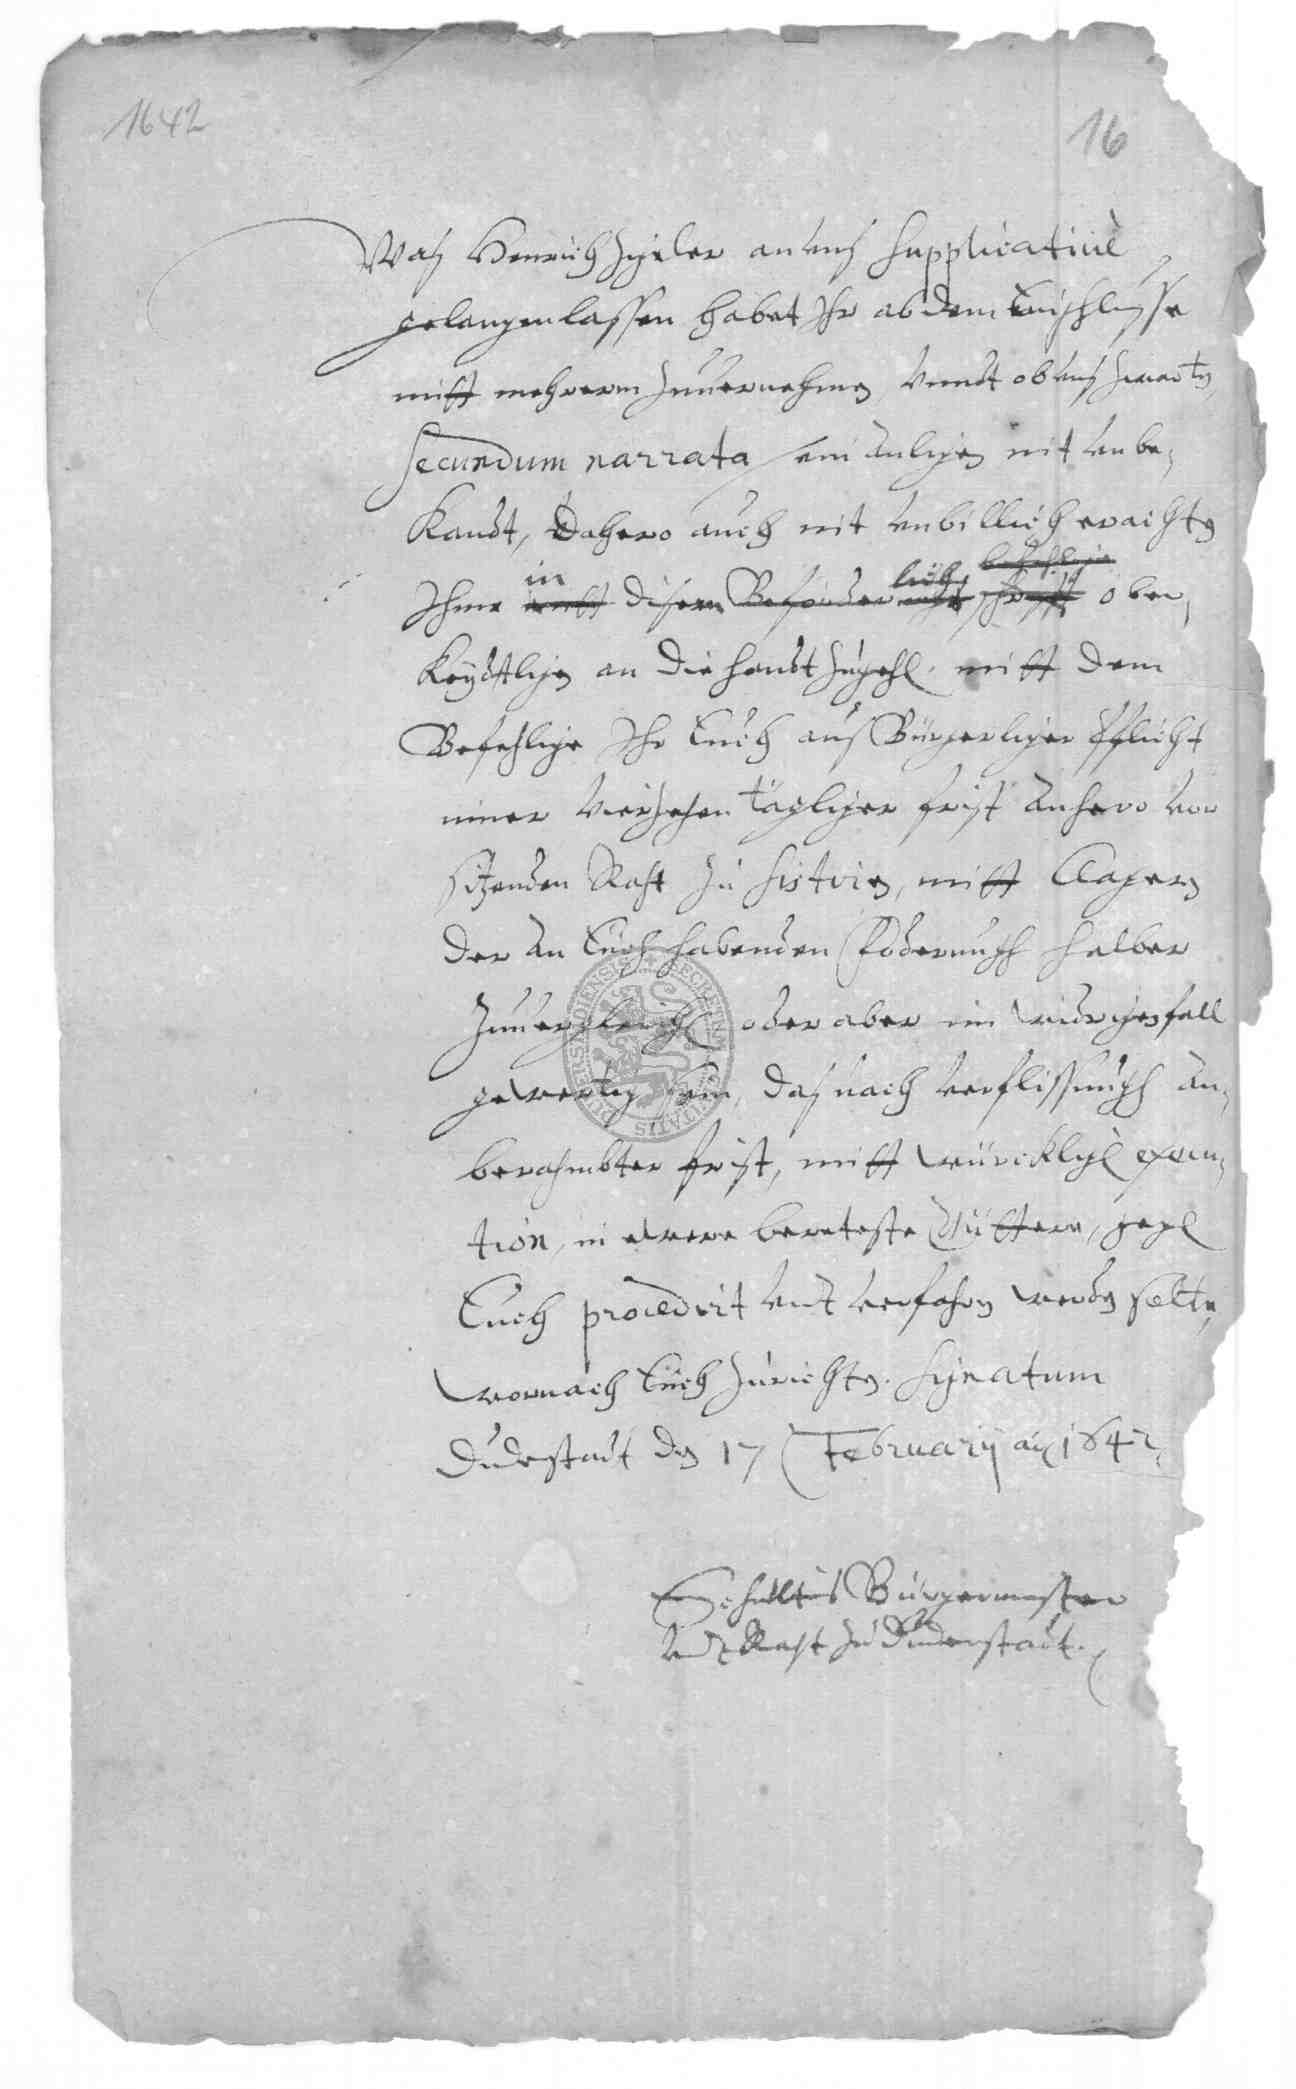 1642
16
Was Henrich Zigeler an uns supplicative
gelangen lassen habet Ihr ab dem Einschlusse
mitt mehrerm zuvernehmen Unndt ob uns zwartn
secundum narrata sein anligen nit unbe-
kandt, Dahero auch nit unbillich erachtn
Ihme in disem Beforder lich ober-
keydtlichen an die handt zugehn mitt dem
Befehlige Ihr Euch aus Bürgerlicher Pflicht
inner vierzehen tägliger frist anhero vor
sitzenden Raht zu sistirn, mitt Clagern
der an Euch habenden Foderungh halber
zuvergleichen oder aber im widrigen fall
gewertig sein, das nach verflissungh an-
berahmbter frist, mitt würcklicher execu-
tion, in ewere bereteste Gütter, gegen
Euch procedirt und verfahrn werdn solte,
wornach Euch zurichtn. Signatum
Duderstadt den 17 February ao 1642
Schultheis Bürgermeister
undt Raht zu Duderstadt.
SECRETUM CIVITATIS DUDERSTADIENSIS